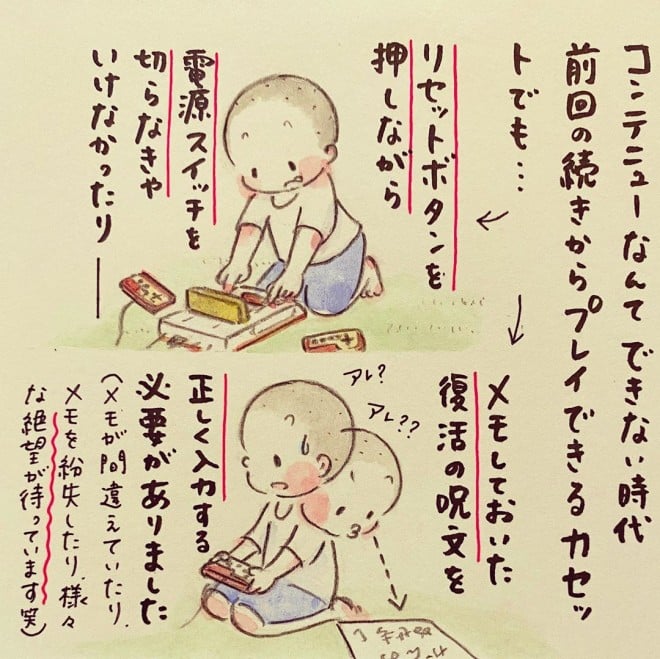 コンテニューなんてできない時代
前回の続きからプレイできるカセッ
トでも…
リセットボタンを
押しながら
電源スイッチを
切らなきゃ
いけなかったり
メモしておいた
復活の呪文を
アレ?
アレ??
正しく入力する
必要がありました
(メモが間違えていたり、
メモを紛失したり、様々
な絶望が待っています笑)